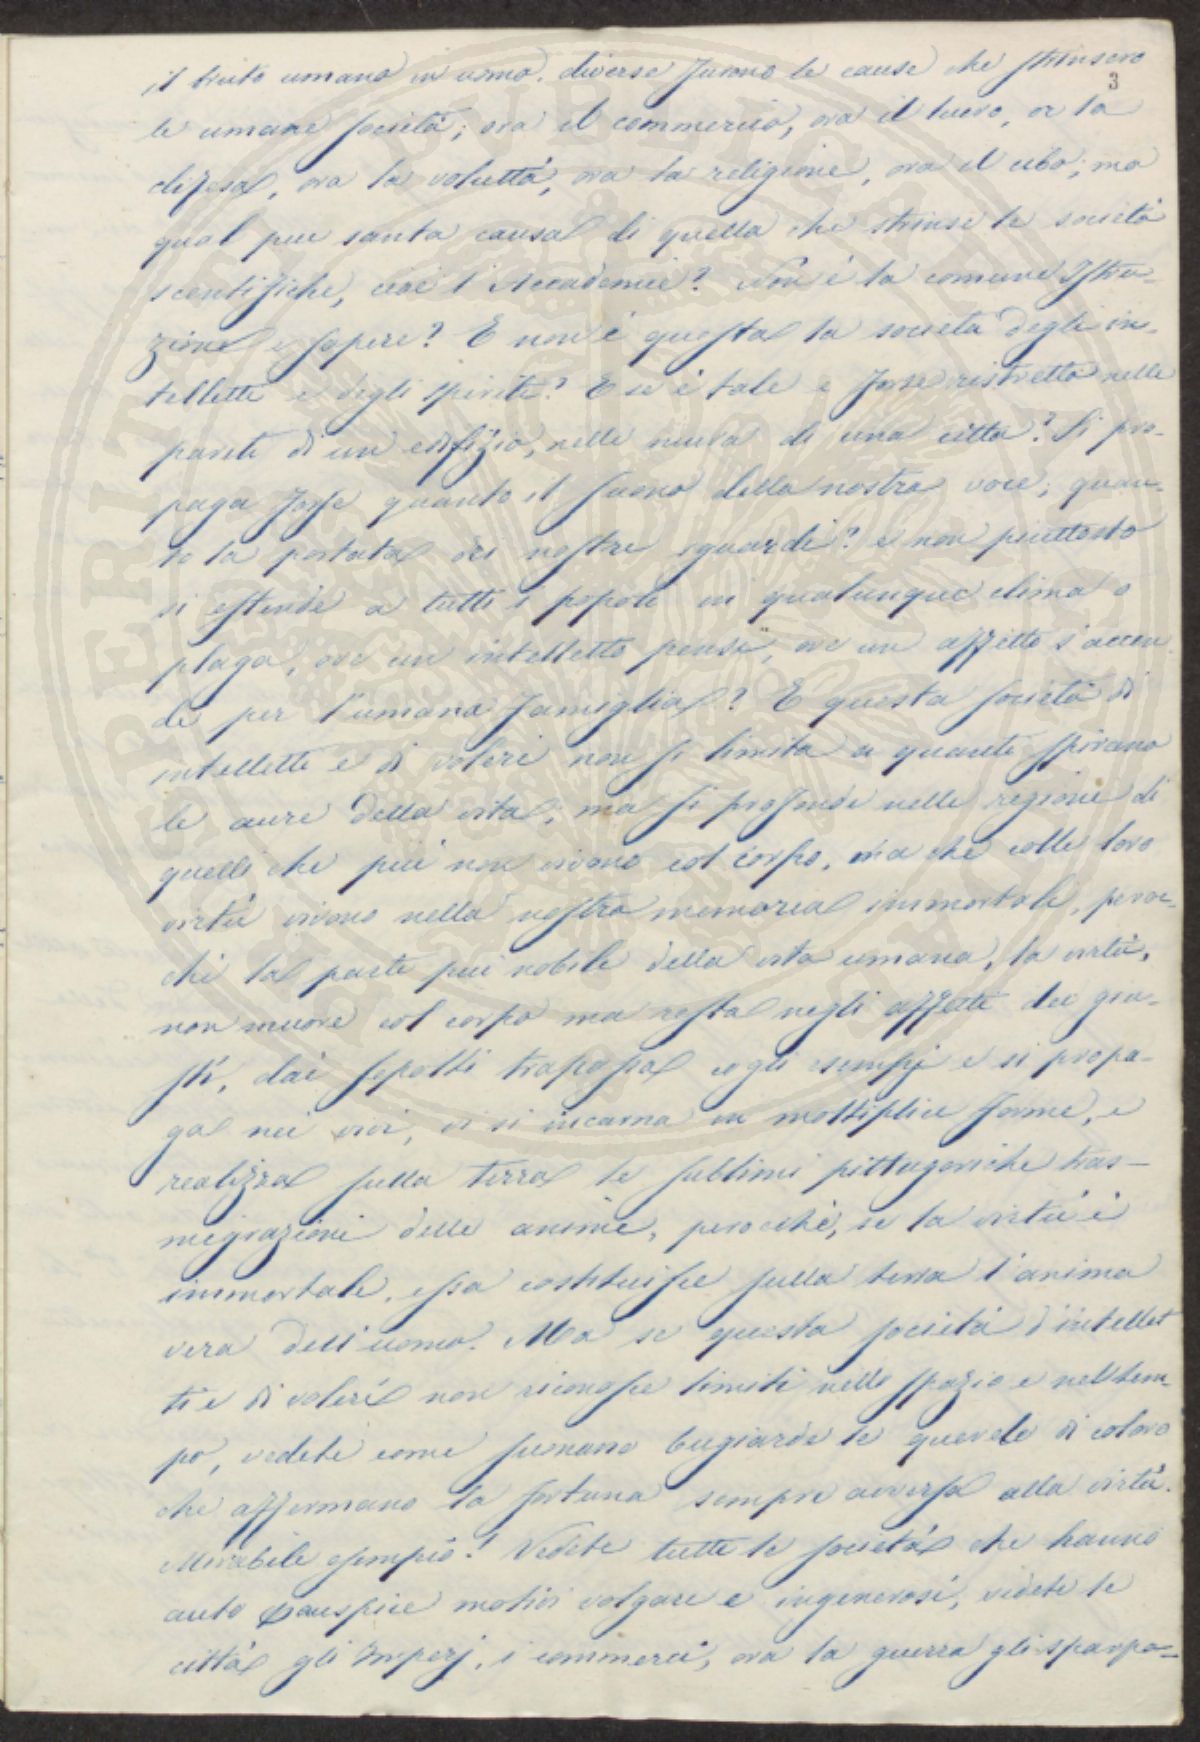 3
il bruto umano in uomo. diverse furono le cause che strinsero
le umane società; ora il commercio, ora il lucro, or la
difesa, ora la voluttà, ora la religione, ora il cibo; ma
qual piu santa causa di quella che strinse le società
scentifiche, cioè l'Accademie? Non è la comune Istru-
zione e sapere? E non è questa la società degli in-
telletti e degli spiriti? E se è tale e forse ristretta nelle
pareti di un edifizio, nelle mura di una città? Si pro-
paga forse quanto il suono della nostra voce; quan-
to la portata dei nostri sguardi? e non piuttosto
si estende a tutti i popoli in qualunque clima o
plaga, ove un intelletto pensi, ove un affetto s'accen
de per l'umana famiglia? E questa società di
intelletti e di voleri non si limita a quanti spirano
le aure della vita; ma si profonde nelle regioni di
quelli che più non vivono col corpo, ma che colle loro
virtù vivono nella nostra memoria immortale, peroc-
chè la parte più nobile della vita umana, la virtù,
non muore col corpo ma resta negli affetti dei giu-
sti, dai sepolti trapassa cogli esempj e si propa-
ga nei vivi, vi si incarna in moltiplice forme, e
realizza sulla terra le sublimi pittagoriche tras-
migrazioni delle anime, perocchè, se la virtù è
immortale, essa costituisce sulla terra l'anima
vera dell'uomo. Ma se questa società d'intellet
ti e di voleri non riconosce limiti nello spazio e nel tem-
po, vedete come sieno bugiarde le querele di coloro
che affermano la fortuna sempre avversa alla virtù.
Mirabile esempio! Vedete tutte le società che hanno
auto auspice motivi volgari e ingenerosi, vedete le
città gli Imperj, i commerci, ora la guerra gli sparpa-